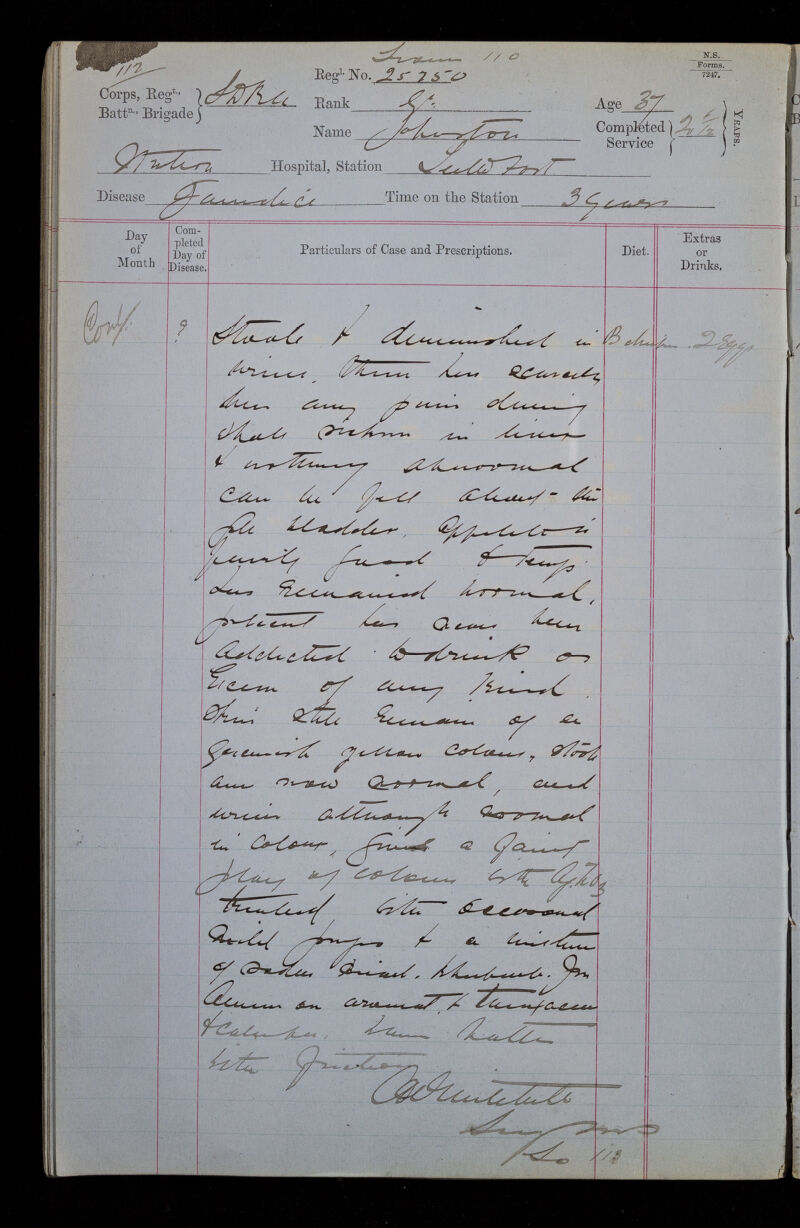 from 110
112
N.S.
Forms.
7247.
Regl. No. 25750
Corps, Regt., Battn., Brigade
Rank Gr.
Age 37
Name Johnston
Completed Service 2 YEARS.
Station Hospital, Station Fort
Disease Jaundice Time on the Station 3 years
Day of Month
Completed Day of Disease.
Particulars of Case and Prescriptions.
Diet.
Extras or Drinks.
Cont. 9 Stools & diminished in B chicken. 2 Eggs
urine, there has scarcely
been any pain during
in liver
& nothing abnormal
can be felt about the
gall bladder. Appetite is
fairly good & temp.
has remained normal,
patient has never been
addicted to drink or
excess of any kind.
Skin still remains of a
greenish yellow colour, stools
are now normal, and
urine although normal
in colour, gives a faint
play of colours with
treated with occasional
mild purges & a mixture
of Rhubarb.
aromat. & taraxacum
& calumba. warm baths
with friction
Mitchell
Surg
to 113